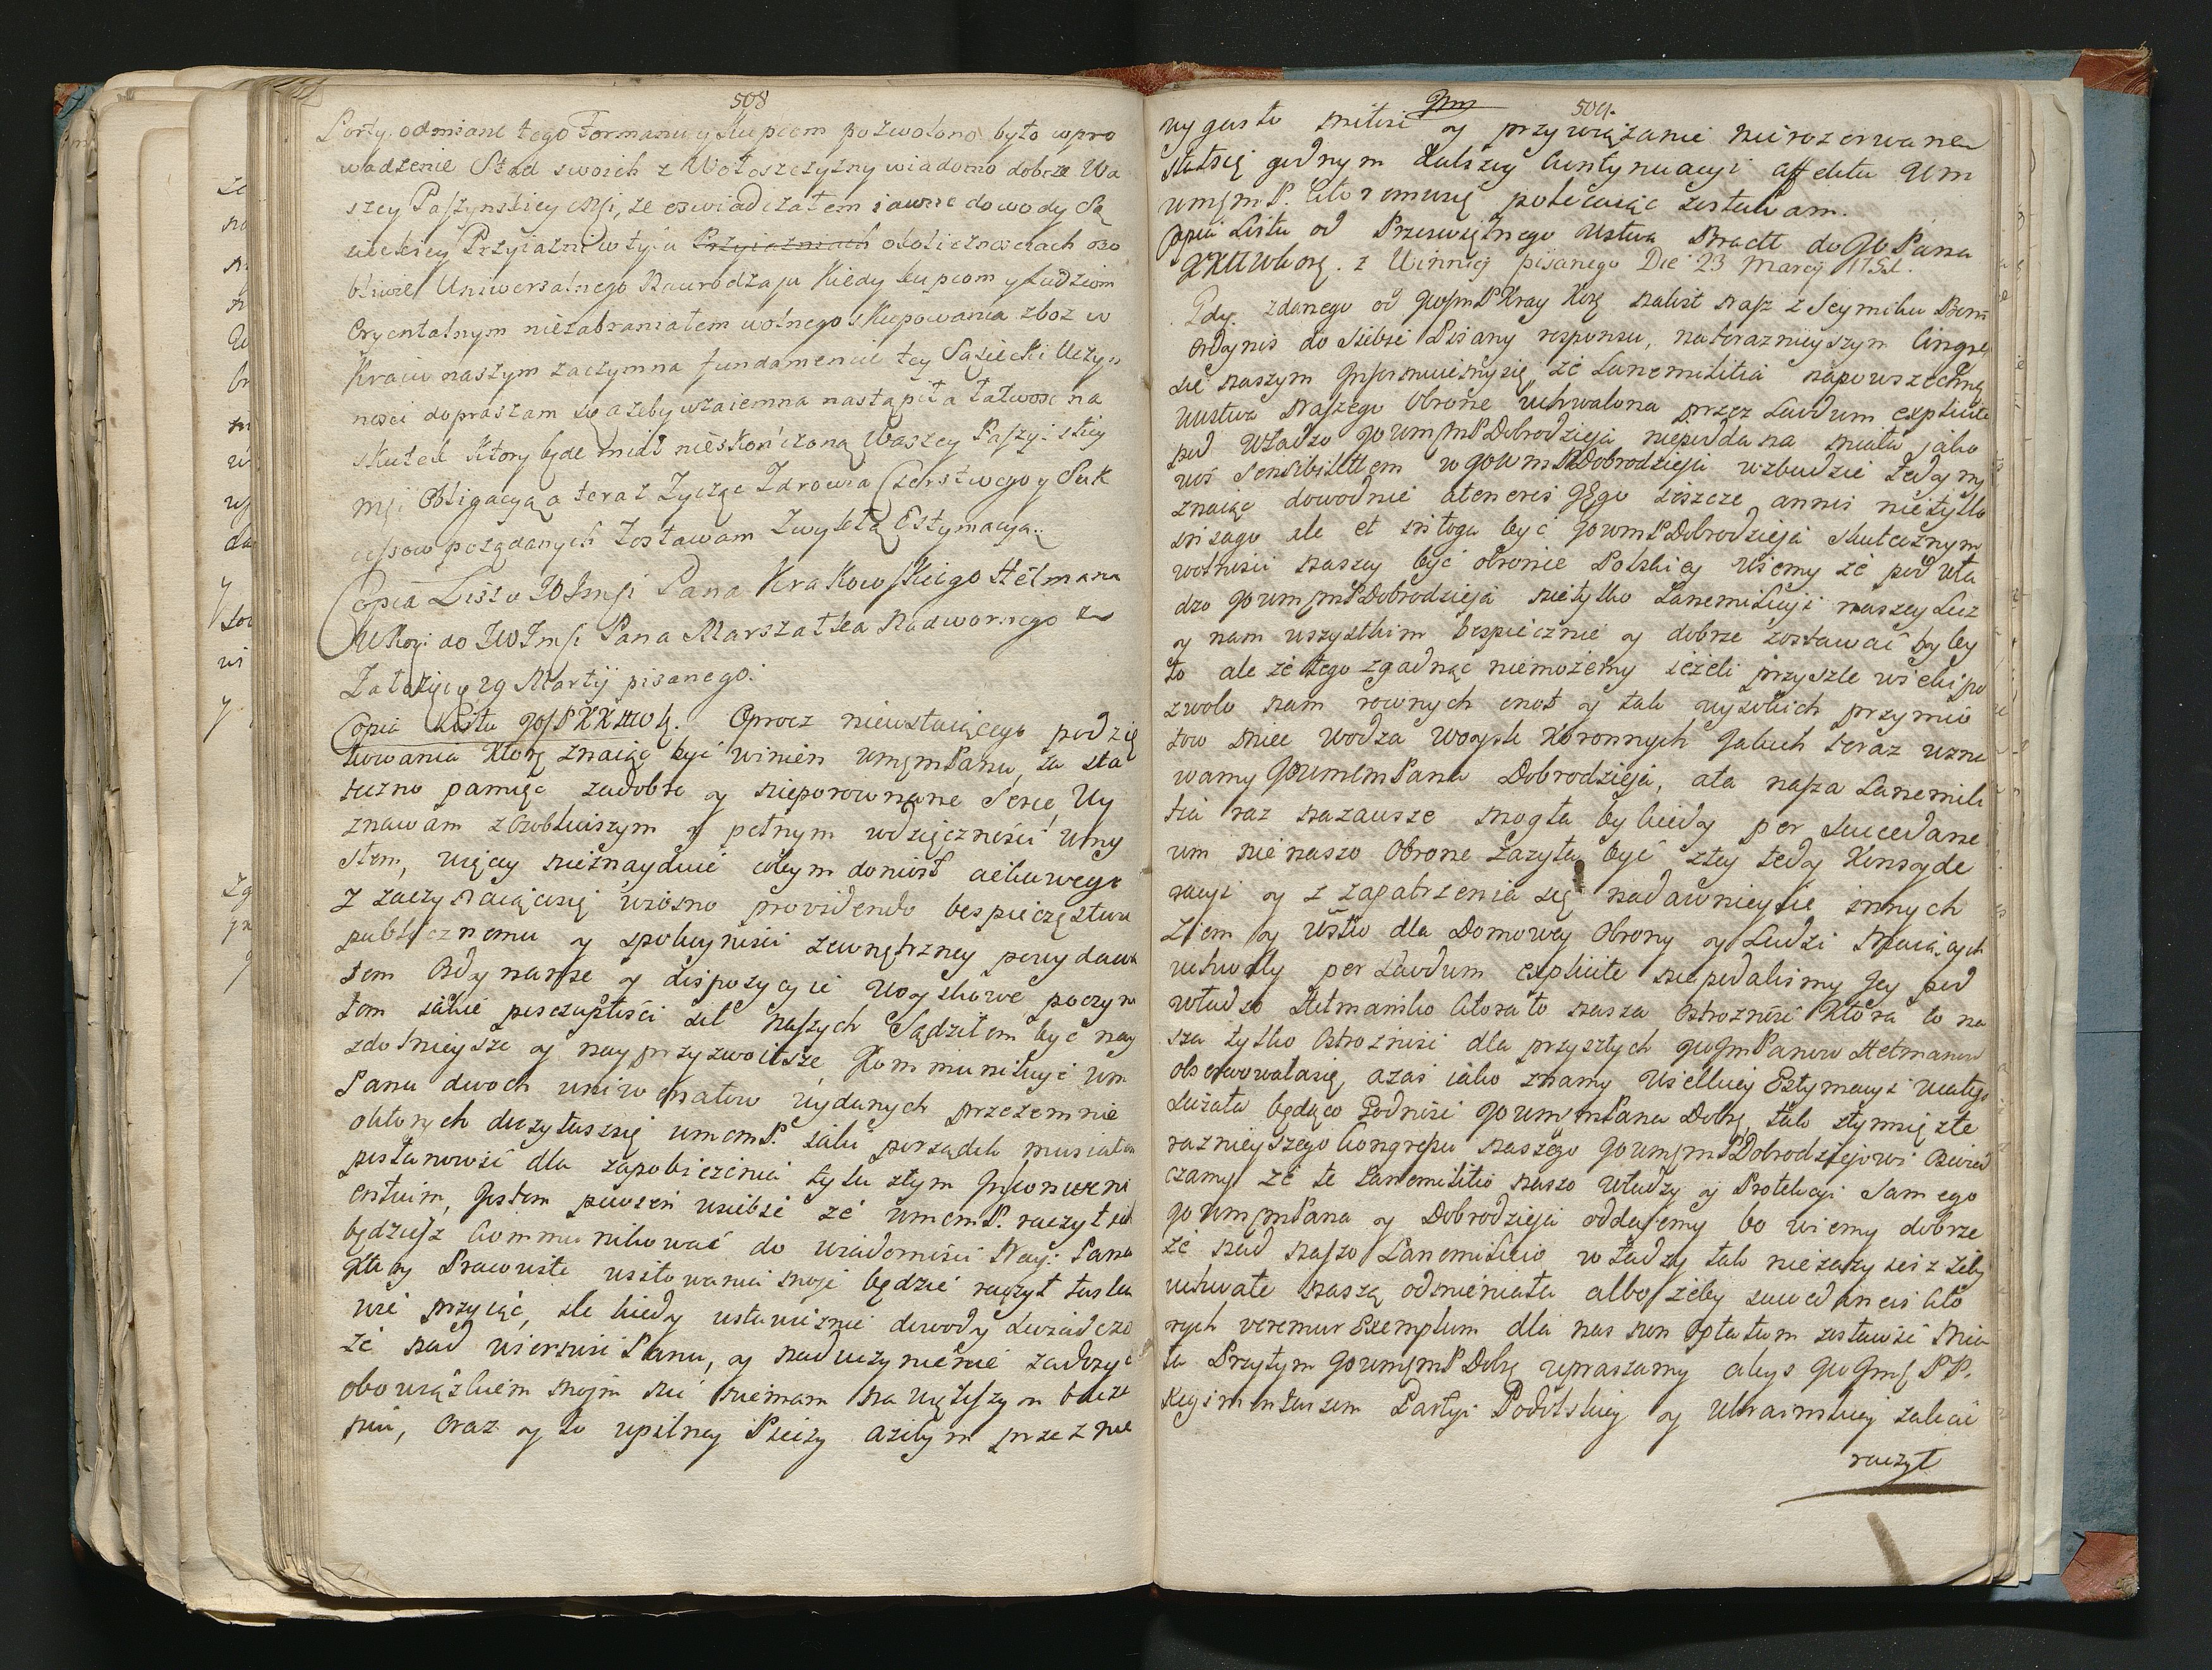 508
Porty. odmiane tego Formanu y kupcom pozwolono było wpro
wadzenie Stad swoich z Wołoszczyzny wiadomo dobrze Wa
szey Paszynskiey Msi, ze oswiadczałem iawne dowody Są
siedzkiey Przyiazni w tych Przyiazniach okolicznosciach oso
bliwie Uniwersalnego Nieurodzaju kiedy kupcom y Ludziom
Oryentalnym niezabraniałem wolnego skupowania zboz w
Kraiu naszym zaczym na fundamencie tey Sąsiedzki Uczyn
nosci dopraszam się ażeby wzaiemna nastąpiła łatwosc na
skutek ktory będę miał nieskończoną Waszey Paszyńskiey
Msi Obligacyą a teraz Zycząc Zdrowia Czerstwego y Suk
cessow pożądanych Zostawam Zwykłą Estymacyą.
Copia Listu JWJmsi Pana Krakowskiego Hetmana
WKog: do JWJmsi Pana Marszałka Nadwornego z
Załoziec 29 Martij pisanego.
Copia Listu Oprocz nieustaiącego podzię
kowania Ktorę znaiąc być winien WmęmPanu, za sta
teczno pamięc zadobre y nieporownane Serce Wy
znawam zOsobliwszym y pełnym wdzięczności umy
słem, więcy nieznayduie cobym doniosł ciekawego
Z zaczynaiącąsię wiosno providendo bespieczęstwu
publicznemu y spokoyności zewnętrzney powydawa
łem Ordynanse y dispozycyie Woyskowe poczyni
łem iakie pisczupłości sił naszych Sądziłem być nay
zdolnieysze y nayprzyzwoitsze, Kommunikuję Wm
Panu dwoch uniwersałow wydanych przezemnie
oktorych doczytaszsię WmemP. iaki porządek musiałem
postanowić dla zapobieżenia tylu złym Inkonweni
entiom, Jestem pewien usiebie ze WmemP. raczyłsz
będziesz Kommunikować do wiadomości Nay: Pana
Ktory Prawdziwe usiłowania moje będzie raczył łaska
wie przyiąć, ale kiedy ustawicznie dowody swiadczo
że nad wierność Panu, y naduczynienie zadosyć
obowiązkiem moim nic niemam na większym bacze
niu, Oraz y to upilney Pieczy ażebym przezna
509.
wygasło miłości y przywiązanie nierozerwane
stałsię godnym dalszey kontynuacyi affektu Wm
WmęmP. ktoremusię polecaiąc zostawam.
Copia Listu od Przeswiętnego Wstwa Bracłł do JoPana
z Winnicy pisanego Die 23 Marcij
Gdy zdanego od nalist nasz z Seymiku Boni
Ordynis do siebie Pisany responsu, nateraznieyszym Congre
sie naszym Informuiemysię że Łanemilitia napowszechną
Wwstwa Naszego Obrone uchwalona przez Laudum explicite
pod Władzo JoWmęmPDobrodzieja niepoddana miała jako
woś Sensibilitatem wJoWmPDobrodzieju wzbudzić tedy my
znaiąc dowodnie ateneris JEgo ieszcze annis nietylko
insago ale et intoga być JoWmPDobrodzieja skutecznym
wolności naszey być obronie Polskiey wiemy że pod wła
dzo JoWmęmPDobrodzieja nietylko Łanemilicyi naszey Lecz
y nam wszystkim bespiecznie y dobrze zostawać by by
ło ale że tego zgadnąć niemożemy ieżeli przyszłe wieki po
zwolo nam rownych cnot y tak wysokich przymio
tow miec Wodza Woysk Koronnych Jakich teraz uzna
wamy JoWmemPana Dobrodzieja, ata nasza Łanemili
tia raz nazawsze mogła by kiedy per Succedane
um nienaszo Obrone zazyta być ztey tedy Konsyde
racyi y z zapatrzenia się nadawnieysie innych
Ziem y Wstw dla Domowey Obrony y Ludzi Maiących
uchwały per Laudum explicite niepodaliśmy Jey pod
Władzo Hetmansko ktora to nasza ostrożność Ktora to na
sza tylko Ostrożność dla przyszłych JwJmPanow Hetmanow
obserwowałasię, azas iako znamy Wielkiey Estymacyi
należała będąco Godności JoWmęmPana Dobrę, tak z
raznieyszego Kongressu naszego JoWmęmPDobrodziejowi Oswiad
czamy że te Łanemilitio naszo Władzy y Protekcyi Samego
JoWmęmPana y Dobrodzieja oddaiemy bo wiemy dobrze
że nad naszo Łanemilicio władzy tak niezażyiesz żeby
uchwałe naszą odmieniała albo żeby succedaneis kto
rych veremur Exemplum dla nas non optatum zostawić mia
ła Przytym JoWmęmPDobrę upraszamy abys JwJmę PP.
Regimentarzom Partyi Podolskiey y Ukrainskiey zalecić
raczył